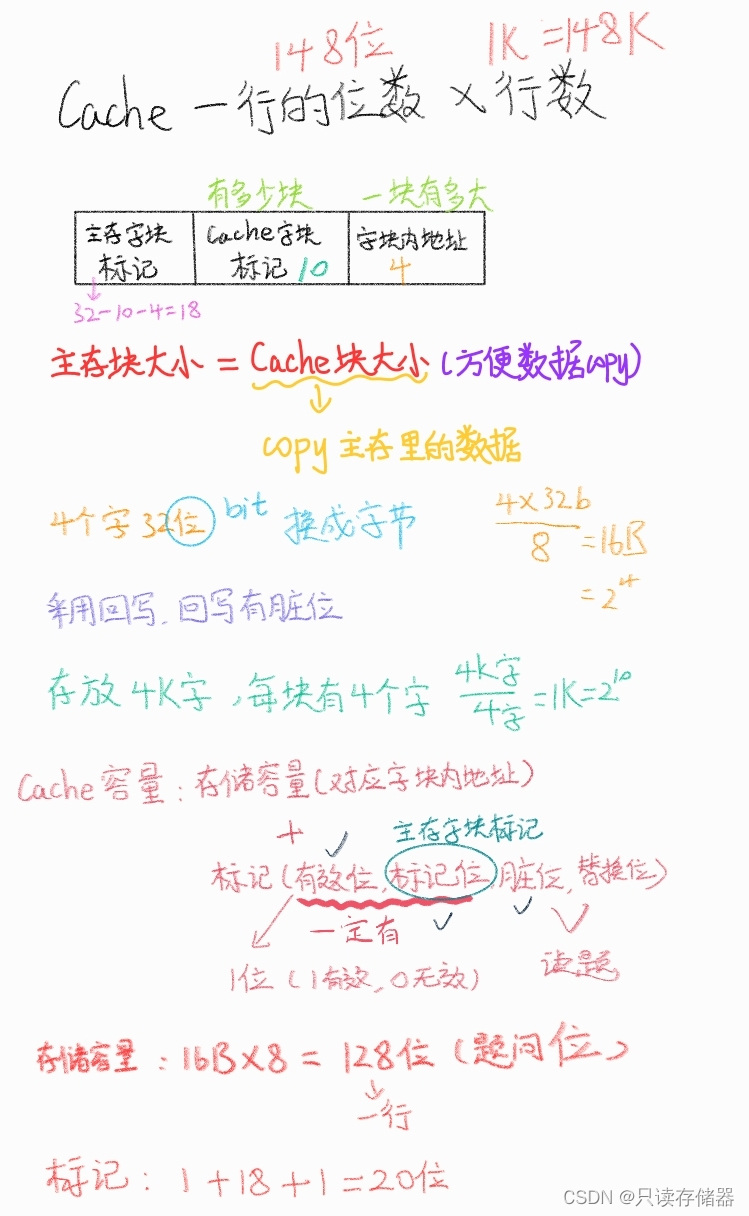 148位 1K=148K
Cache 一行的位数 × 行数
有多少块 一块有多大
主存字块标记 Cache字块标记 10 字块内地址 4
32-10-4=18
主存块大小 = Cache块大小 (方便数据copy)
copy 主存里的数据
4个字 32位 bit 换成字节 4×32b/8 =16B
=2^4
采用回写,回写有脏位
存放 4K字,每块有4个字 4K字/4字 =1K=2^10
Cache 容量:存储容量(对应字块内地址)
+ 主存字块标记
标记(有效位,标记位,脏位,替换位)
一定有
1位(1有效,0无效) 读题
存储容量:16B×8 = 128位(题问位)
一行
标记:1+18+1=20位
CSDN @只读存储器